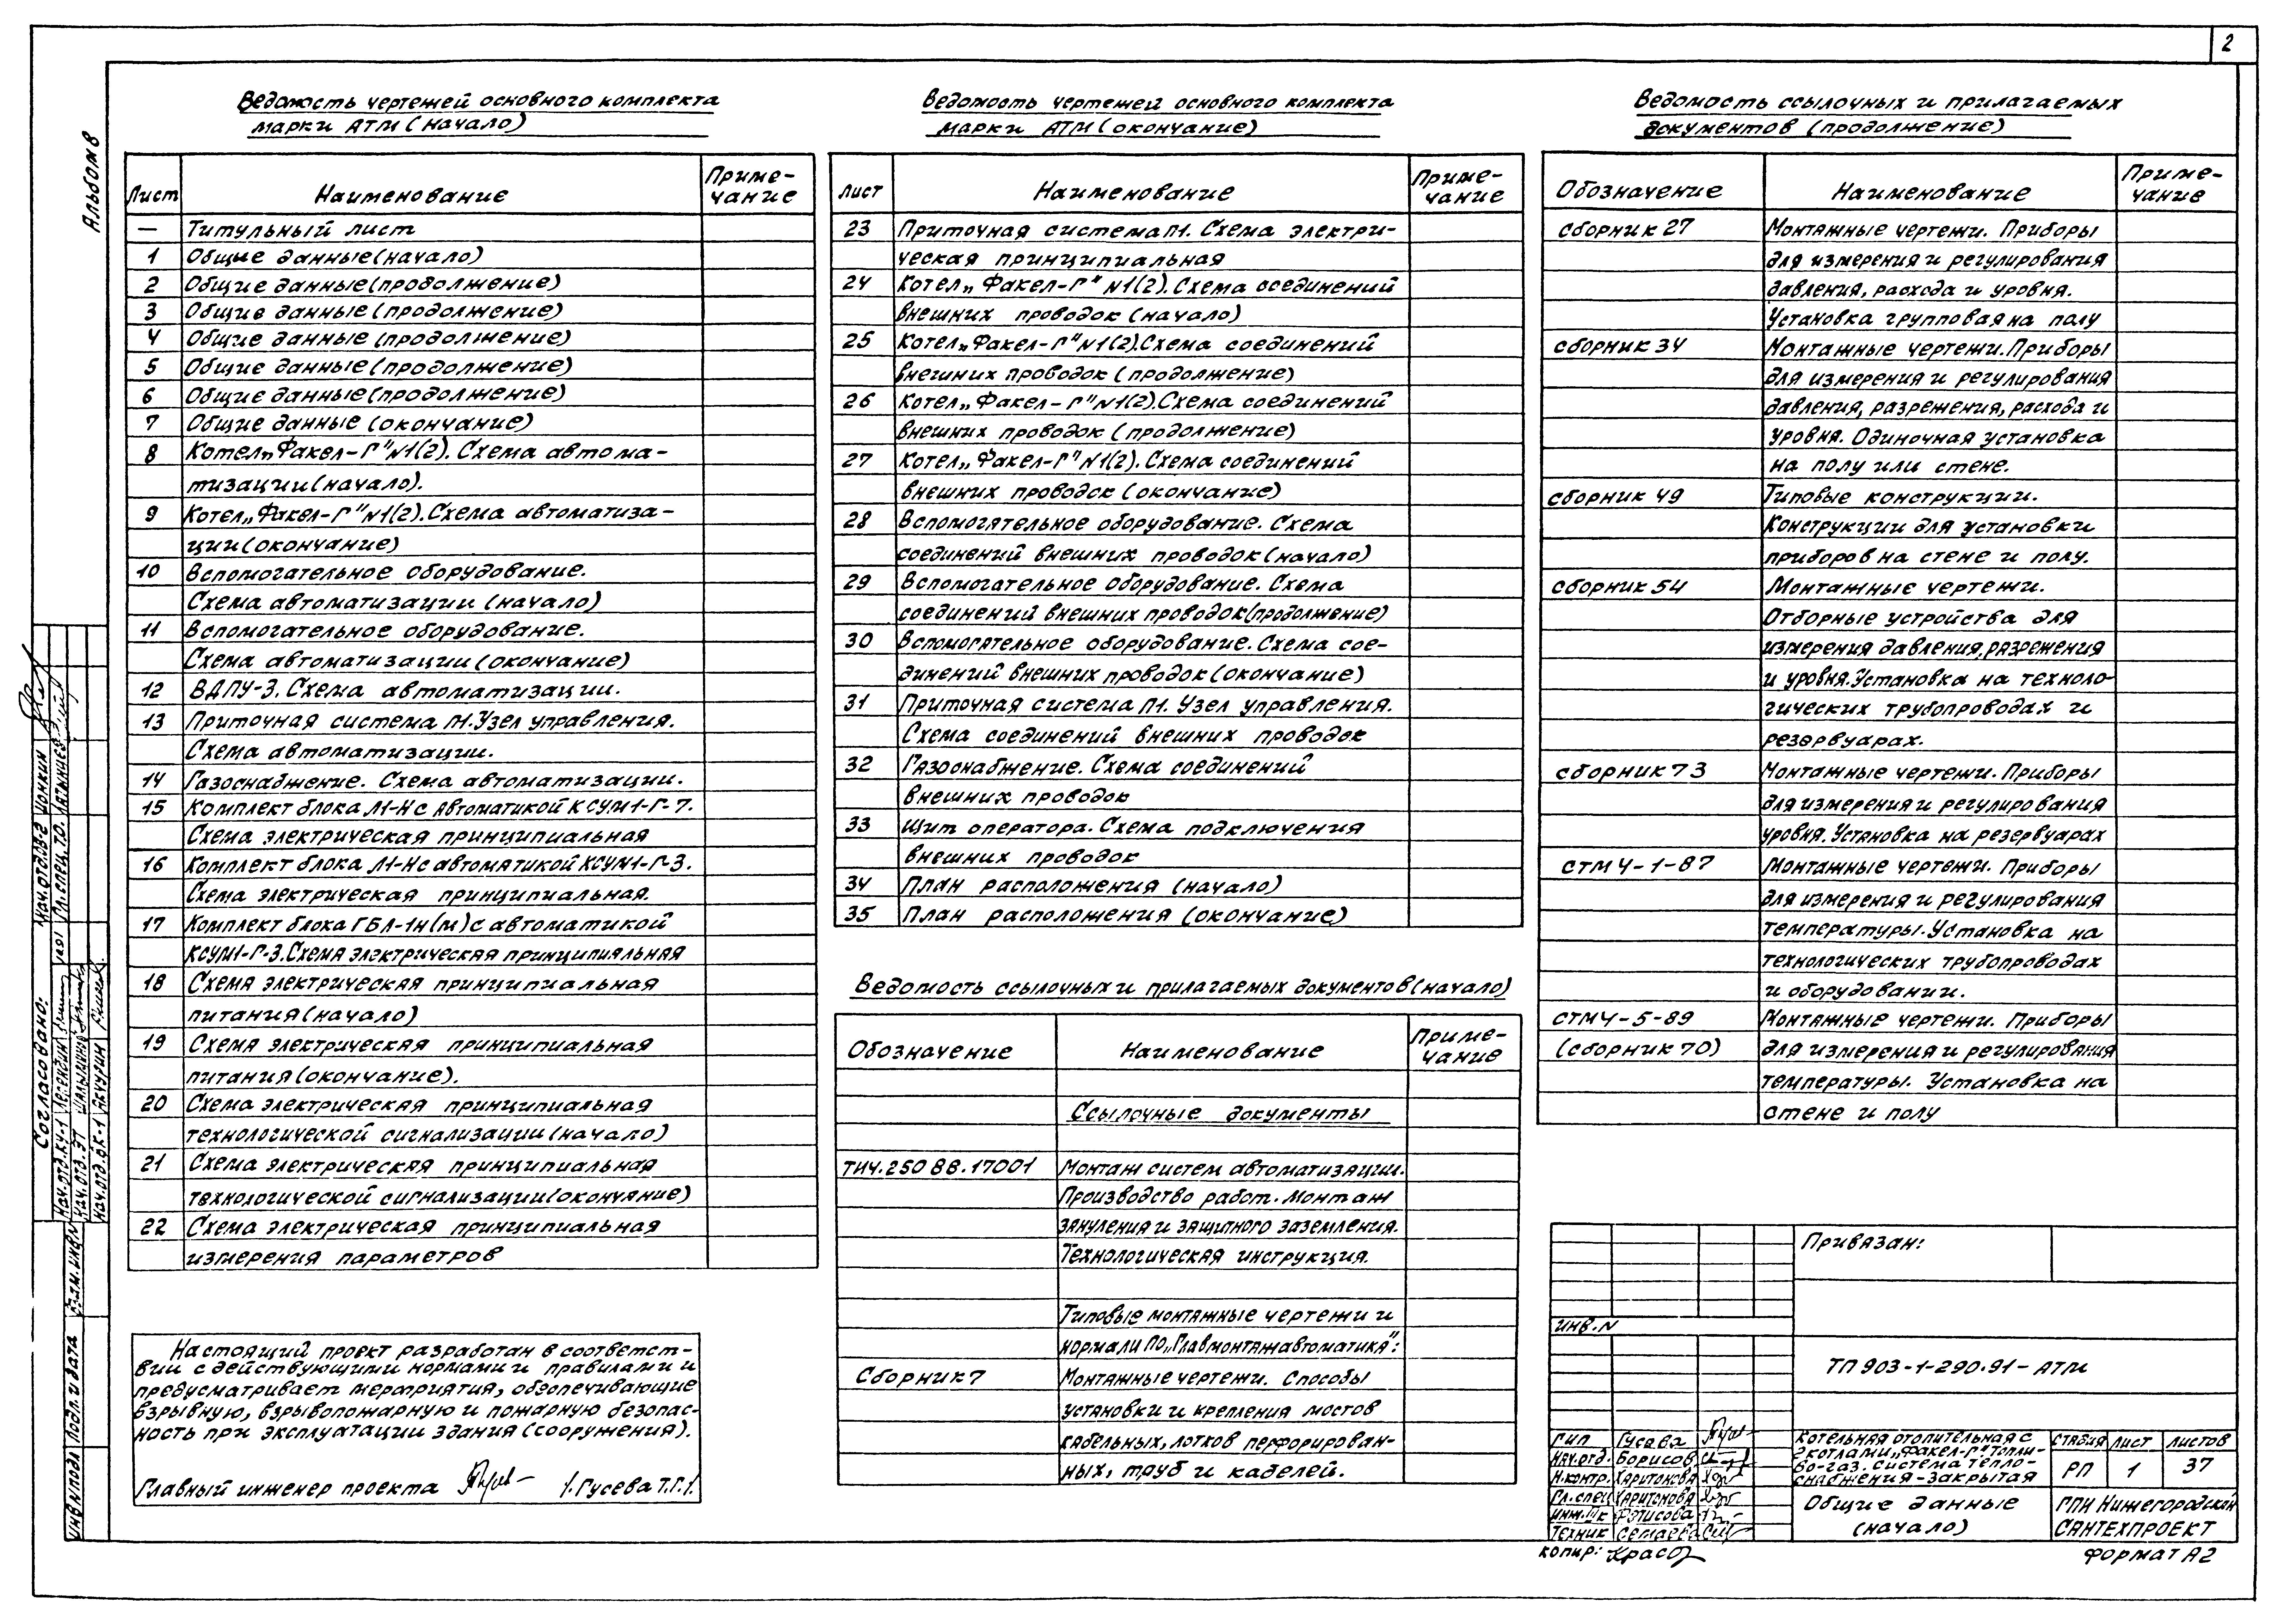 2
Альбом 8
Ведомость чертежей основного комплекта
марки АТМ (начало)
Лист Наименование Приме-
чание
— Титульный лист
1 Общие данные (начало)
2 Общие данные (продолжение)
3 Общие данные (продолжение)
4 Общие данные (продолжение)
5 Общие данные (продолжение)
6 Общие данные (продолжение)
7 Общие данные (окончание)
8 Котел „Факел-Г" N1(2). Схема автома-
тизации (начало).
9 Котел „Факел-Г" N1(2). Схема автоматиза-
ции (окончание)
10 Вспомогательное оборудование.
Схема автоматизации (начало)
11 Вспомогательное оборудование.
Схема автоматизации (окончание)
12 ВДПУ-3. Схема автоматизации.
13 Приточная система П1. Узел управления.
Схема автоматизации.
14 Газоснабжение. Схема автоматизации.
15 Комплект блока Л1-Н с автоматикой КСУМ1-Г-7.
Схема электрическая принципиальная
16 Комплект блока Л1-Н с автоматикой КСУМ1-Г-3.
Схема электрическая принципиальная.
17 Комплект блока ГБЛ-1Н(М) с автоматикой
КСУМ1-Г-3. Схема электрическая принципиальная
18 Схема электрическая принципиальная
питания (начало)
19 Схема электрическая принципиальная
питания (окончание).
20 Схема электрическая принципиальная
технологической сигнализации (начало)
21 Схема электрическая принципиальная
технологической сигнализации (окончание)
22 Схема электрическая принципиальная
измерения параметров
Настоящий проект разработан в соответст-
вии с действующими нормами и правилами и
предусматривает мероприятия, обеспечивающие
взрывную, взрывопожарную и пожарную безопас-
ность при эксплуатации здания (сооружения).
Главный инженер проекта /Гусева Т.Г./
Ведомость чертежей основного комплекта
марки АТМ (окончание)
Лист Наименование Приме-
чание
23 Приточная система П1. Схема электри-
ческая принципиальная
24 Котел „Факел-Г" N1(2). Схема соединений
внешних проводок (начало)
25 Котел „Факел-Г" N1(2). Схема соединений
внешних проводок (продолжение)
26 Котел „Факел-Г" N1(2). Схема соединений
внешних проводок (продолжение)
27 Котел „Факел-Г" N1(2). Схема соединений
внешних проводок (окончание)
28 Вспомогательное оборудование. Схема
соединений внешних проводок (начало)
29 Вспомогательное оборудование. Схема
соединений внешних проводок (продолжение)
30 Вспомогательное оборудование. Схема сое-
динений внешних проводок (окончание)
31 Приточная система П1. Узел управления.
Схема соединений внешних проводок
32 Газоснабжение. Схема соединений
внешних проводок
33 Щит оператора. Схема подключения
внешних проводок
34 План расположения (начало)
35 План расположения (окончание)
Ведомость ссылочных и прилагаемых документов (начало)
Обозначение Наименование Приме-
чание
Ссылочные документы
ТИ4.25088.17001 Монтаж систем автоматизации.
Производство работ. Монтаж
зануления и защитного заземления.
Технологическая инструкция.
Типовые монтажные чертежи и
нормали ПО „Главмонтажавтоматика":
Сборник 7 Монтажные чертежи. Способы
установки и крепления мостов
кабельных, лотков перфорирован-
ных, труб и кабелей.
Ведомость ссылочных и прилагаемых
документов (продолжение)
Обозначение Наименование Приме-
чание
сборник 27 Монтажные чертежи. Приборы
для измерения и регулирования
давления, расхода и уровня.
Установка групповая на полу
сборник 34 Монтажные чертежи. Приборы
для измерения и регулирования
давления, разрежения, расхода и
уровня. Одиночная установка
на полу или стене.
сборник 49 Типовые конструкции.
Конструкции для установки
приборов на стене и полу.
сборник 54 Монтажные чертежи.
Отборные устройства для
измерения давления, разрежения
и уровня. Установка на техноло-
гических трубопроводах и
резервуарах.
сборник 73 Монтажные чертежи. Приборы
для измерения и регулирования
уровня. Установка на резервуарах
СТМ4-1-87 Монтажные чертежи. Приборы
для измерения и регулирования
температуры. Установка на
технологических трубопроводах
и оборудовании.
СТМ4-5-89 Монтажные чертежи. Приборы
(сборник 70) для измерения и регулирования
температуры. Установка на
стене и полу
Привязан:
инв.N
ТП 903-1-290.91-АТМ
ГИП Гусева
Нач.отд. Борисов
Н.контр. Харитонова
Гл.спец Харитонова
инж.IIк Фетисова
Техник Семаева
Котельная отопительная с
2 котлами „Факел-Г" Топли-
во-газ. система тепло-
снабжения-закрытая
стадия лист листов
РП 1 37
Общие данные
(начало)
ГПИ Нижегородский
САНТЕХПРОЕКТ
копир:
Формат А2
Согласовано:
Нач.отд.ОВ-2 Цонкин
Гл.спец.Т.О.
Нач.отд.КЧ-1
Нач.отд.ЭТ
Нач.отд.ВК-1 Акчурин
Взам.инв.N
Подп. и дата
инв.N подл